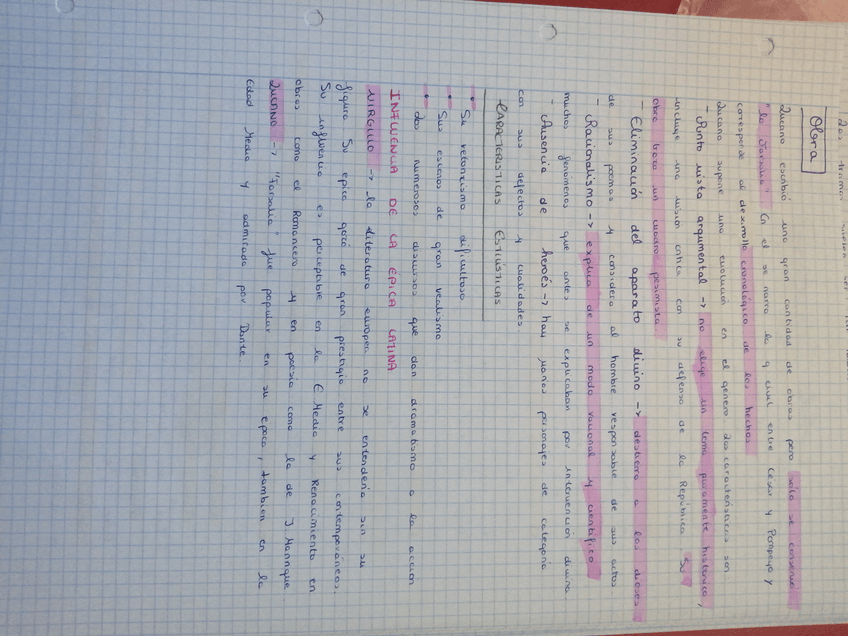 Obra
Lucano escribió una gran cantidad de obras pero sólo se conserva
"la Farsalia" En el se narra la g civil entre César y Pompeyo y
corresponde al desarrollo cronológico de los hechos.
Lucano supone una evolución en el genero las caracteristicas son
- Punto vista argumental → no elige un tema puramente histórico,
incluye una visión crítica con su defensa de la República Su
obra trazó un cuadro pesimista
- Eliminación del aparato divino → destierra a los dioses
de sus poemas y considera al hombre responsable de sus actos
- Racionalismo → explica de un modo racional y científico
muchos fenómenos que antes se explicaban por intervención divina.
- Ausencia de heroés → hay varios personajes de categoria
con sus defectos y cualidades.
CARACTERISTICAS ESTILÍSTICAS
• Su retorizismo dificultoso
• Sus escenas de gran realismo
• Los numerosos discursos que dan dramatismo a la acción
INFLUENCIA DE LA EPICA LATINA
VIRGILIO → la literatura europea no se entenderia sin su
figura Su epica gozó de gran prestigio entre sus contemporaneos.
Su influencia es perceptible en la E Media y Renacimiento en
obras como el Romancero y en poesia como la de J Manrique
LUCANO → "Farsalia" fue popular en su epoca, tambien en la
Edad Media y admirada por Dante.